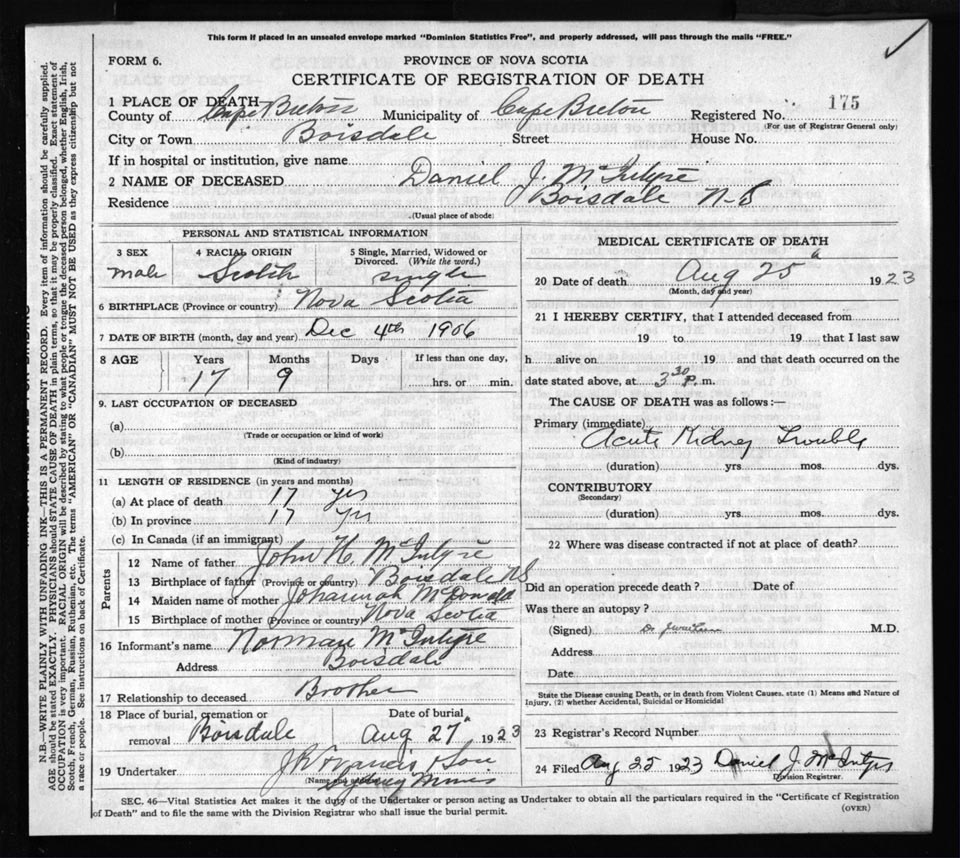 This form if placed in an unsealed envelope marked "Dominion Statistics Free", and properly addressed, will pass through the mails "FREE."
FORM 6.
PROVINCE OF NOVA SCOTIA
CERTIFICATE OF REGISTRATION OF DEATH
1 PLACE OF DEATH
County of Cape Breton Municipality of Cape Breton Registered No. 175
(For use of Registrar General only)
City or Town Boisdale Street House No.
If in hospital or institution, give name
2 NAME OF DECEASED Daniel J. McIntyre
Residence Boisdale N-S
(Usual place of abode)
PERSONAL AND STATISTICAL INFORMATION
3 SEX 4 RACIAL ORIGIN 5 Single, Married, Widowed or Divorced. (Write the word.)
male Scotch single
6 BIRTHPLACE (Province or country) Nova Scotia
7 DATE OF BIRTH (month, day and year) Dec 4th 1906
8 AGE Years Months Days If less than one day,
17 9 hrs. or min.
9. LAST OCCUPATION OF DECEASED
(a)
(Trade or occupation or kind of work)
(b)
(Kind of industry)
11 LENGTH OF RESIDENCE (in years and months)
(a) At place of death 17 yrs
(b) In province 17 yrs
(c) In Canada (if an immigrant)
Parents
12 Name of father John H. McIntyre
13 Birthplace of father (Province or country) Boisdale NS
14 Maiden name of mother Johannah McDonald
15 Birthplace of mother (Province or country) Nova Scotia
16 Informant's name Norman McIntyre
Address Boisdale
17 Relationship to deceased Brother
18 Place of burial, cremation or removal Boisdale Date of burial Aug 27 1923
19 Undertaker J R Francis & Son
(Name and address) Sydney Mines
MEDICAL CERTIFICATE OF DEATH
20 Date of death Aug 25 1923
(Month, day and year)
21 I HEREBY CERTIFY, that I attended deceased from
19 to 19 that I last saw
h alive on 19 and that death occurred on the
date stated above, at 3 30 P. m.
The CAUSE OF DEATH was as follows:—
Primary (immediate)
Acute Kidney Trouble
(duration) yrs mos. dys.
CONTRIBUTORY
(Secondary)
(duration) yrs. mos. dys.
22 Where was disease contracted if not at place of death?
Did an operation precede death? Date of
Was there an autopsy?
(Signed) Dr M.D.
Address
Date
State the Disease causing Death, or in death from Violent Causes, state (1) Means and Nature of
Injury, (2) whether Accidental, Suicidal or Homicidal
23 Registrar's Record Number
24 Filed Aug 25 1923 Daniel J. McIntyre
Division Registrar.
SEC. 46—Vital Statistics Act makes it the duty of the Undertaker or person acting as Undertaker to obtain all the particulars required in the "Certificate of Registration
of Death" and to file the same with the Division Registrar who shall issue the burial permit.
(OVER)
N.B.—WRITE PLAINLY WITH UNFADING INK—THIS IS A PERMANENT RECORD. Every item of information should be carefully supplied.
AGE should be stated EXACTLY. PHYSICIANS should STATE CAUSE OF DEATH in plain terms, so that it may be properly classified. Exact statement of
OCCUPATION is very important. RACIAL ORIGIN will be described by stating to what people or tongue the deceased person belonged, whether English, Irish,
Scotch, French, German, Russian, Ruthenian, etc. The terms "AMERICAN" OR "CANADIAN" MUST NOT BE USED as they express citizenship but not
a race or people. See instructions on back of Certificate.